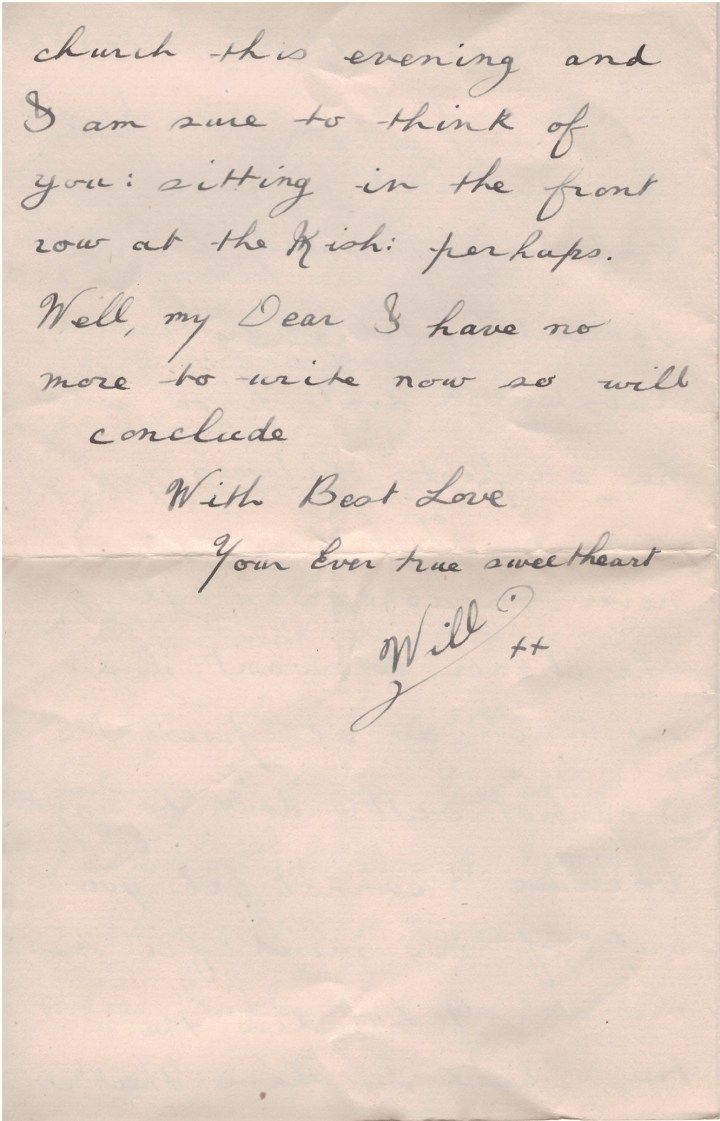 church this evening and
I am sure to think of
you: sitting in the front
row at the Kish: perhaps.
Well, my Dear I have no
more to write now so will
conclude
With Best Love
Your Ever true sweetheart
Will
++